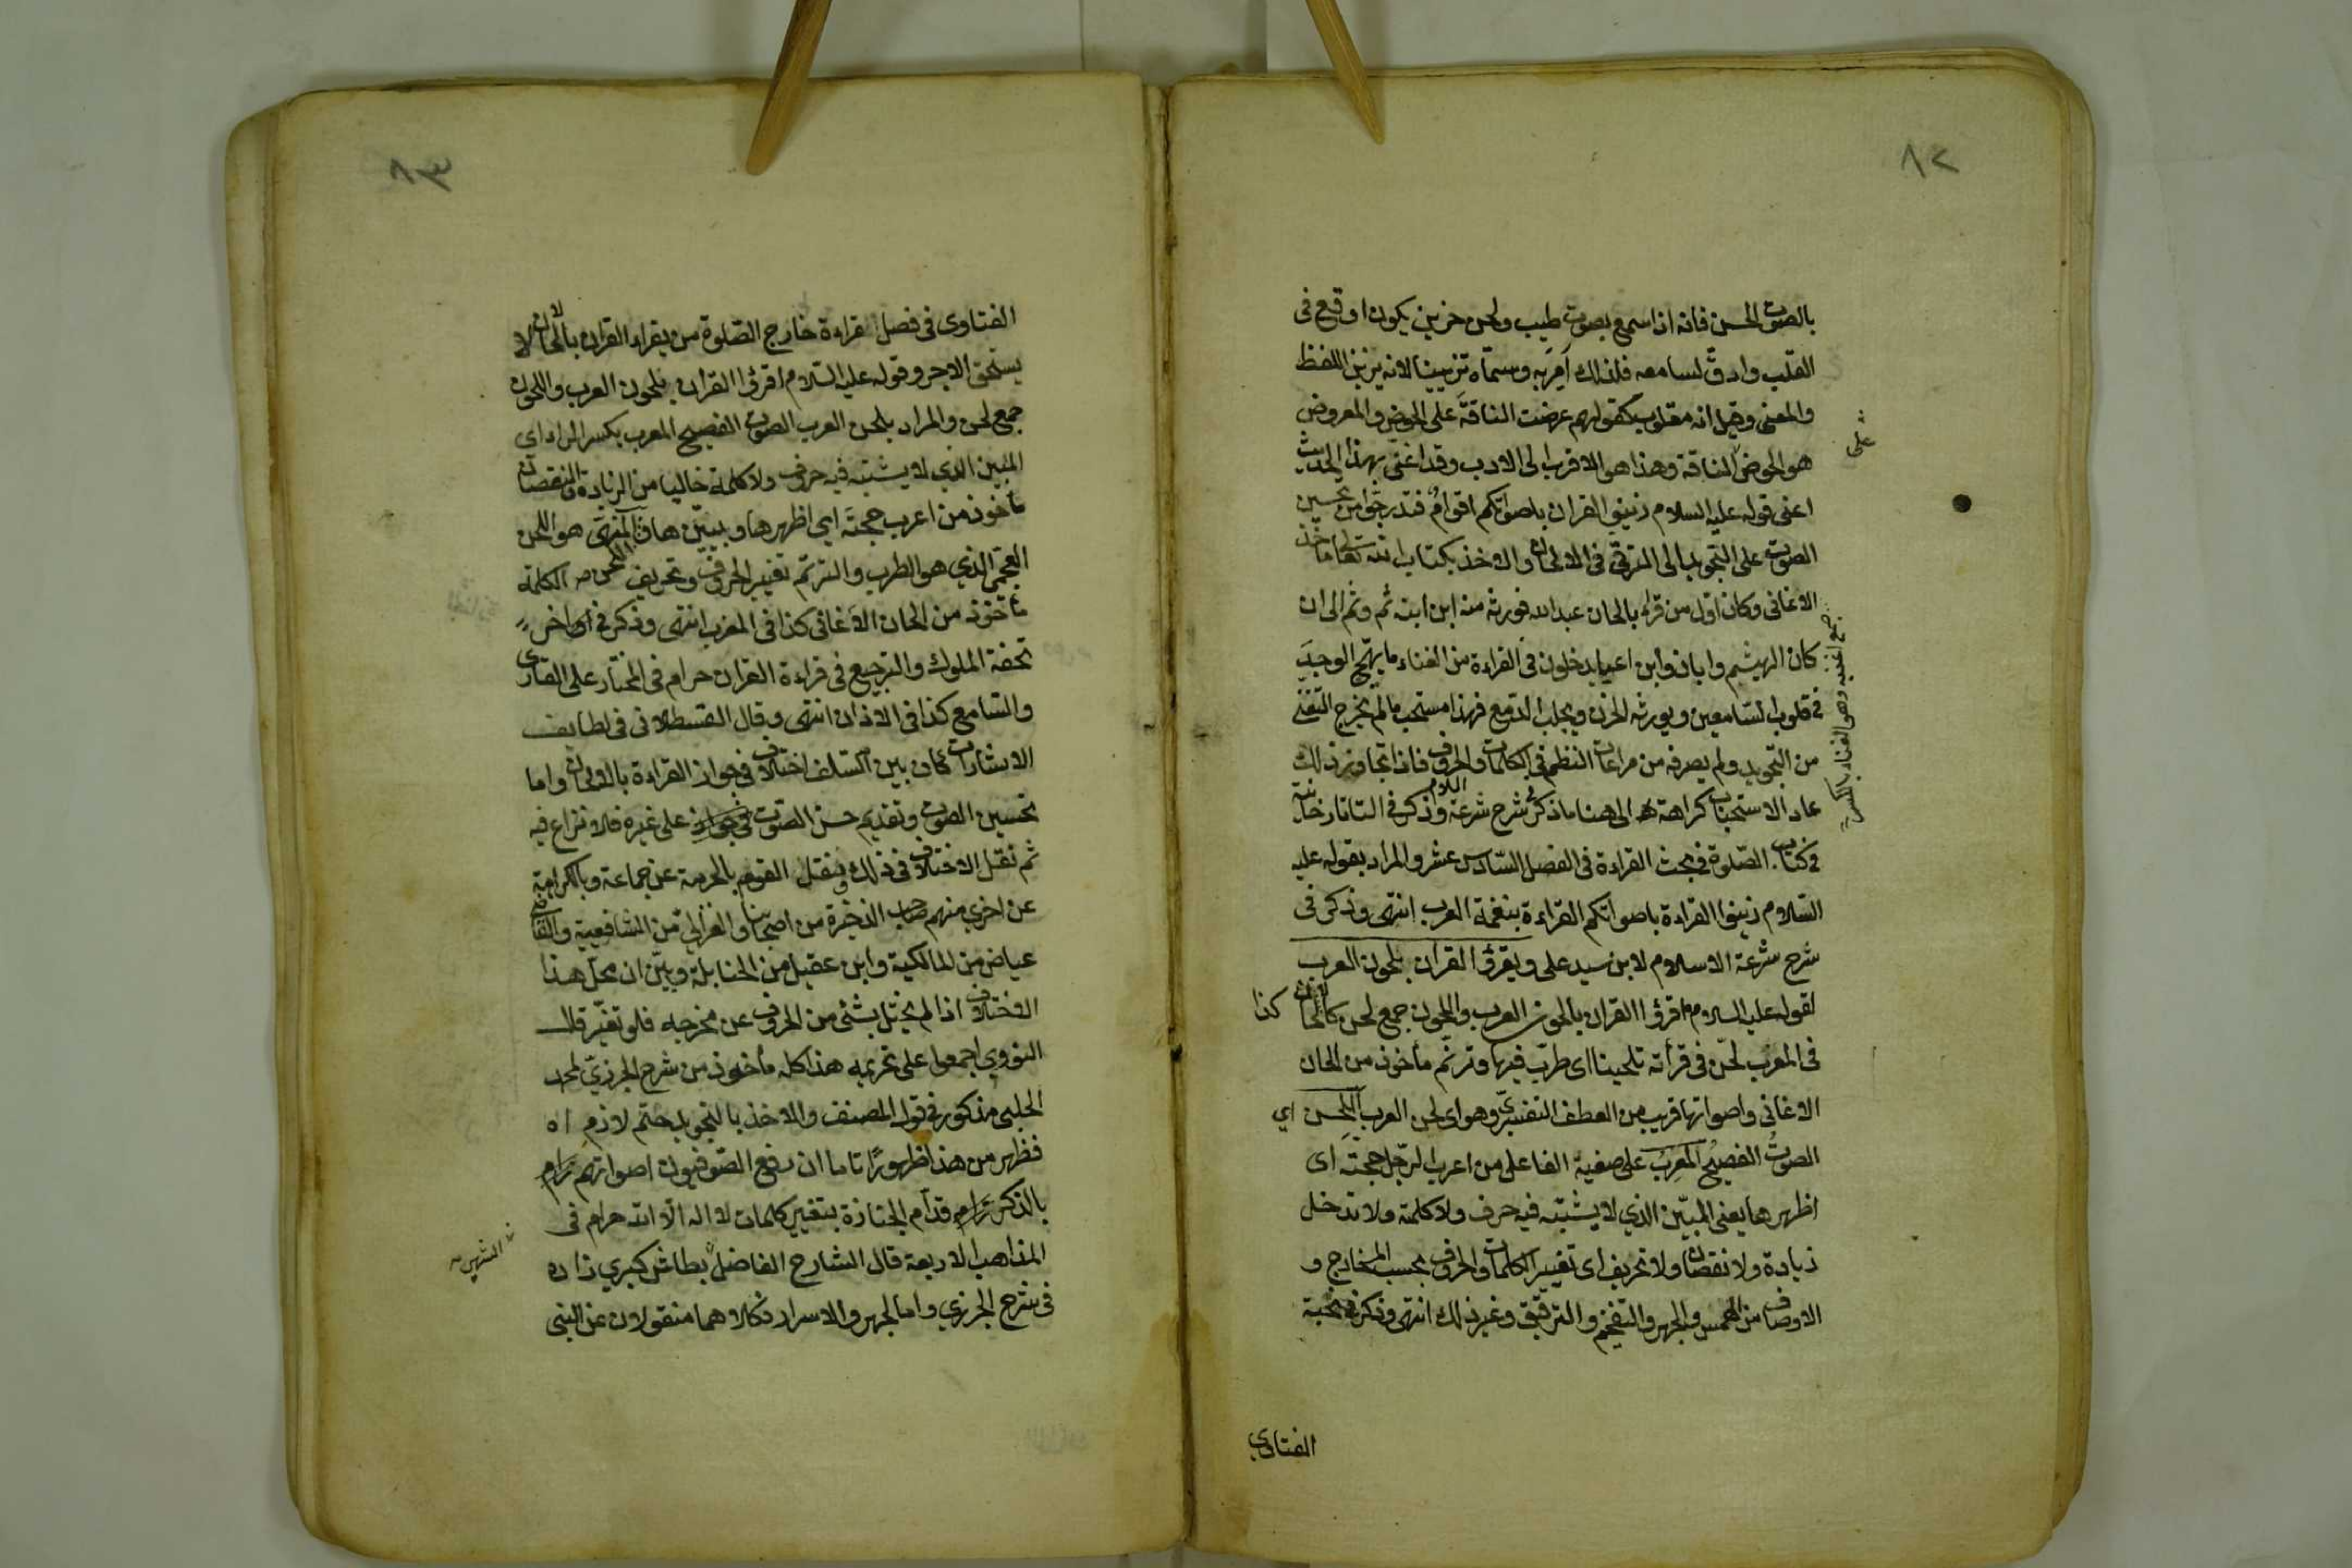 ٨٢
بالصوت الحسن فانه اذا سمع بصوت طيب ولحن حزين يكون اوقع فى
القلب وادق لسامعه فلذلك اُمِرَ به وسمّاه تزيينا لانه يزين اللفظ
والمعنى وقيل انه مقلوب كقولهم عرضت الناقةَ على الحوض والمعروض
هو الحوض على الناقة وهذا هو الاقرب الى الادب وقد اغتنى بهذا الحديث
اعنى قوله عليه السلام زينوا القران باصواتكم اقوامٌ فتدرجوا من تحسين
الصوت على التجويد الى الترقى فى الالحان والاخذ بكتاب الله تعالى ماخذ
الاغانى وكان اول من قراء بالحان عبد الله فورثه منه ابن ابنه ثم وثم الى ان
كان الهيثم وابان وابن اعيا يدخلون فى القراءة من الغناء ما يهيج الوجدَ
فى قلوب السّامعين ويورث الحزن ويجلب الدّمع فهذا مستحب ما لم يخرج التغنى
من التجويد ولم يصرفه من مراعات النظم فى الكلمات والحروف فاذا تجاوز ذلك
عاد الاستحباب كراهة الى هنا ما ذكر فى شرح شرعة الاسلام وذكر فى التاتارخانية
فى كتاب الصّلوة فى بحث القراءة فى الفصل السّادس عشر والمراد بقوله عليه
السّلام زينوا القراءة باصواتكم القراءة بنغمة العرب انتهى وذكر فى
شرح شرعة الاسلام لابن سيد على ويقرؤ القران بلحون العرب
لقوله عليه السلام اقرؤا القران بالحون العرب واللحون جمع لحن كالالحان كذا
فى المغرب لحّن فى قرأته تلحينا اى طرّب فيها وترنّم مأخوذ من الحان
الاغانى واصواتها قريب من العطف التفسيرىّ وهو اى لحن العرب اللحسن اى
الصوتُ الفصيحُ المُعرِبُ على صيغة الفاعل من اعرب الرّجل حجتَه اى
اظهرها يعنى المبيّن الذي لا يشتبه فيه حرف ولا كلمة ولا تدخل
زيادة ولا نقصان ولا تحريف اى تغيير الكلمات والحروف بحسب المخارج و
الاوصاف من الهمس والجهر والتفخيم والترقيق وغير ذلك انتهى وذكر فى نخبة
الفتاوى
على
جمع اغنية وهو الغناء بالكسر
٨٣
الفتاوى فى فصل قراءة خارج الصّلوة من يقراء القران بالالحان لا
يستحق الاجر وقوله عليه السّلام اقرؤا القران بلحون العرب واللحون
جمع لحن والمراد بلحن العرب الصوت الفصيح المعرب بكسر الراء اى
المبين الذي لا يشتبه فيه حروف ولا كلمة خاليا من الزيادة والنقصان
مأخوذ من اعرب حجتَه اى اظهرها وبيّنها فالمنهى هو اللحن
العجمى الذي هو الطرب والترنّم تغيير الحروف وتحريف الكلمة
مأخوذ من الحان الاَغانى كذا فى المغرب انتهى وذكر فى اواخر
تحفة الملوك والترجيع فى قراءة القران حرام فى المختار على القارى
والسّامع كذا فى الاذان انتهى وقال القسطلانى فى لطايف
الاشارات كان بين السّلف اختلاف فى جواز القراءة بالالحان واما
تحسين الصوت وتقديم حسن الصّوت على غيره فلا نزاع فيه
ثم نقل الاختلاف فى ذلك ونقل القول بالحرمة عن جماعة وبالكراهة
عن اخرى منهم صاحب الذخيرة من اصحابنا والغزالى من الشافعية والقاضى
عياض من المالكية وابن عقيل من الحنابلة وبيّن ان محلّ هذا
الاختلاف اذا لم يختل بشئى من الحروف عن مخرجه فلو تغيّر قال
النووي اجمعوا على تحريمه هذا كله مأخوذ من شرح الجزرىّ لمحمد
الحلبى مذكور فى قول المصنف والاخذ بالتجويد حتم لازم اه
فظهر من هذا ظهورًا تاما ان رفع الصّوفيون اصواتهم
بالذكر قدّام الجنازة بتغيير كلمات لا اله الّا الله حرام فى
المذاهب الاربعة قال الشارح الفاضل بطاش كبري زاده
فى شرح الجزرى واما الجهر والاسرار فكلاهما منقولان عن النبى
الشهير